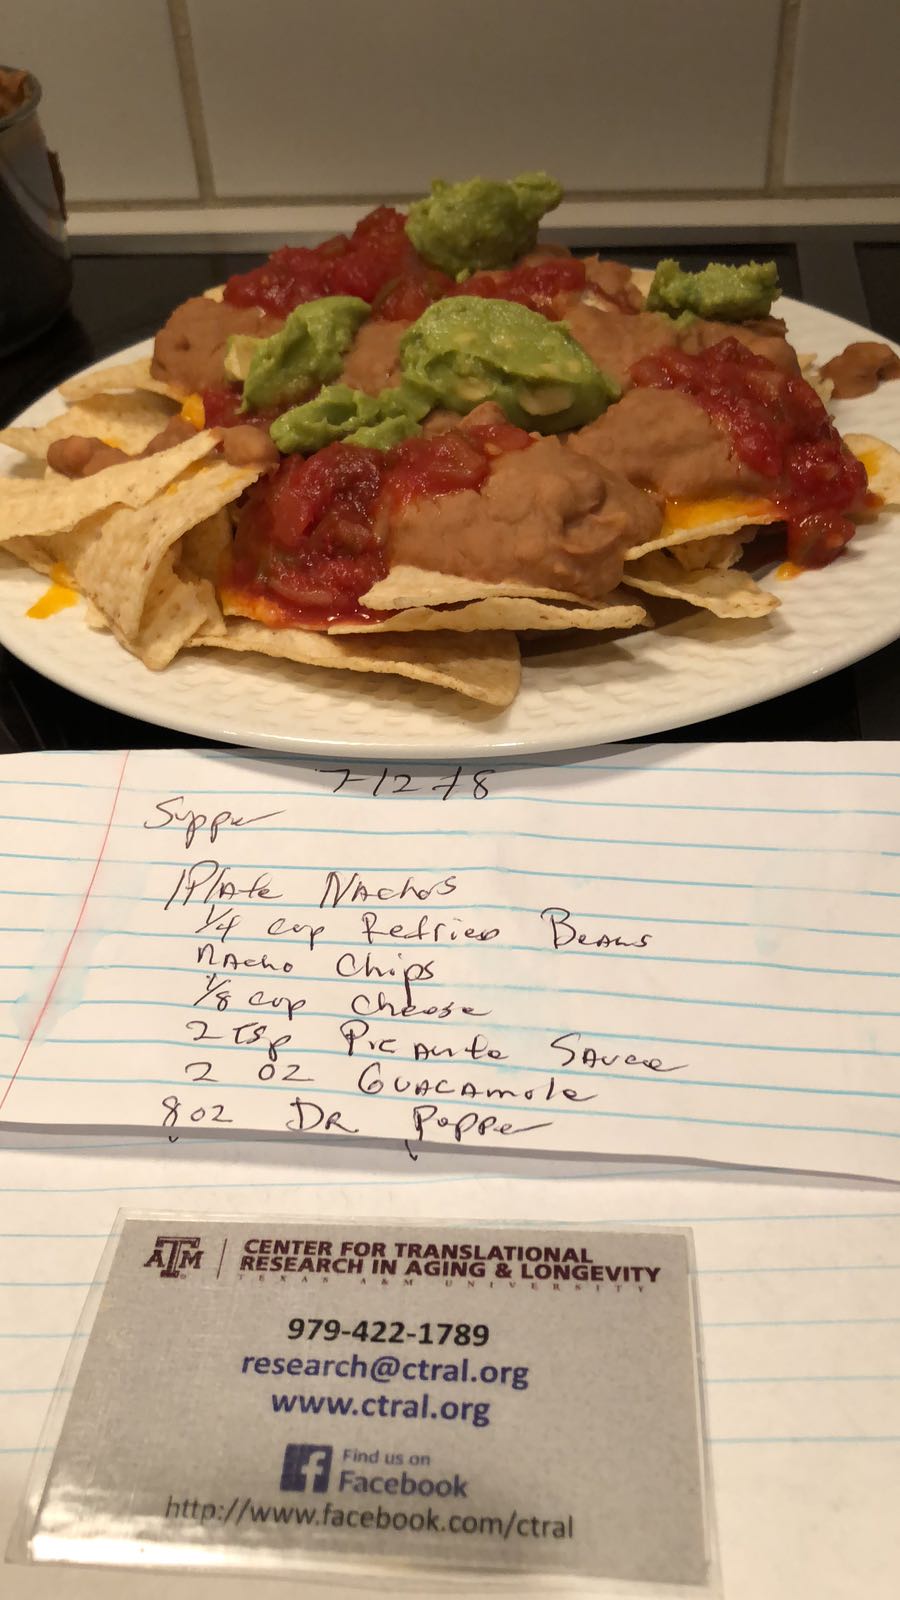 7-12-18
Supper
1 Plate Nachos
1/4 cup Refried Beans
Nacho Chips
1/8 cup cheese
2 Tsp Picante Sauce
2 oz Guacamole
8 oz Dr Pepper
ATM
CENTER FOR TRANSLATIONAL
RESEARCH IN AGING & LONGEVITY
TEXAS A&M UNIVERSITY
979-422-1789
research@ctral.org
www.ctral.org
f Find us on
Facebook
http://www.facebook.com/ctral